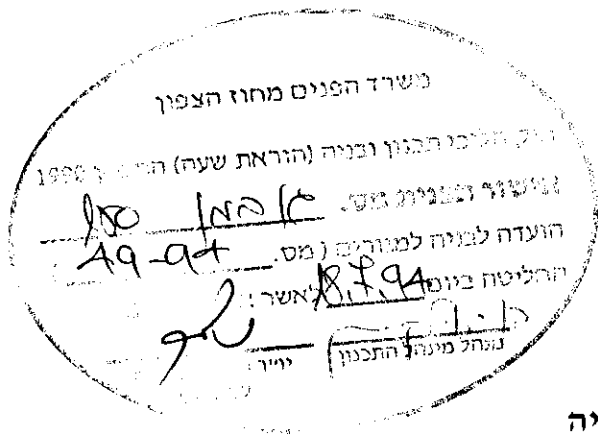 משרד הפנים מחוז הצפון
חוק הליכי תכנון ובניה (הוראת שעה) 1990
אישור תכנית מס.
הועדה לבניה למגורים (מס. 49-94
החליטה ביום 18.7.94 לאשר
מנהל מינהל התכנון יו"ר
יה